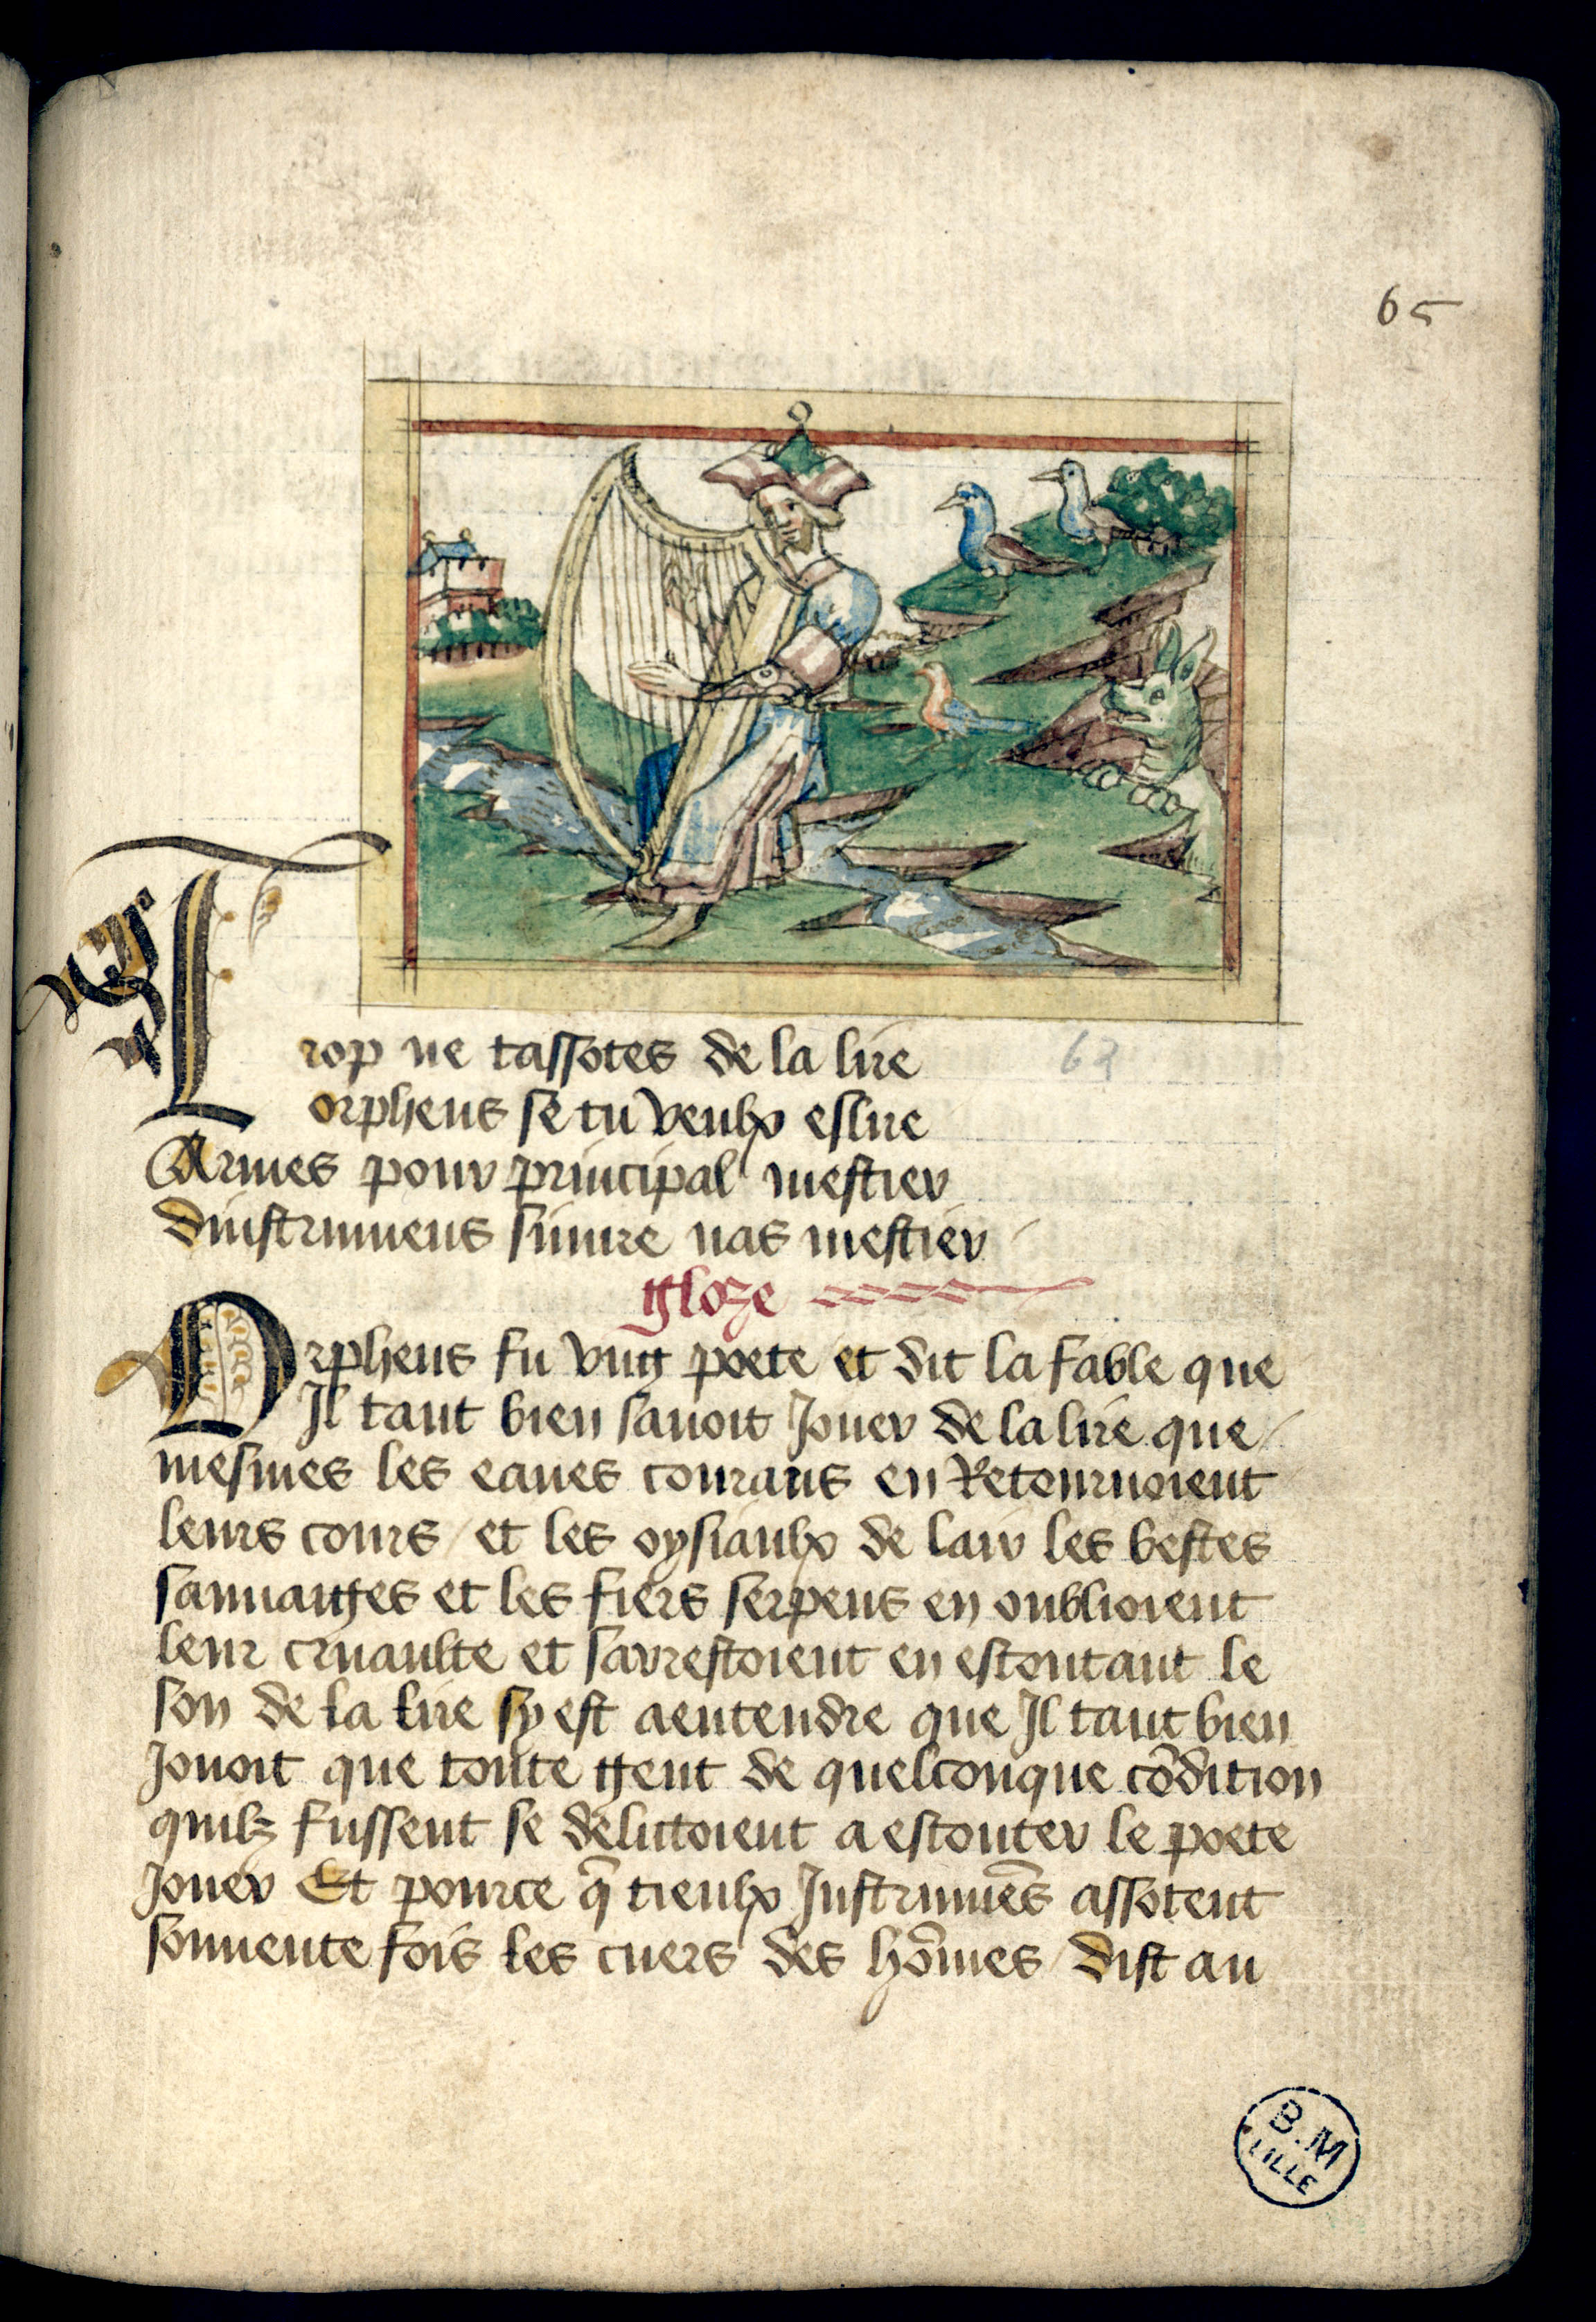 65
Trop ne tassotes de la lire
orpheus se tu veulx eslire
Armes pour principal mestier
dinstrumens siuure nas mestier
63
gloze
Orpheus fu vng poete et dit la fable que
Il tant bien sauoit Jouer de la lire que
mesmes les eaues courans en Retournoient
leurs cours / et les oysiaulx de lair les bestes
sauuaiges et les fiers serpens en oublioient
leur cruaulte et sarrestoient en escoutant le
son de la lire sy est aentendre que Il tant bien
Jouoit que toute gent de quelconque cōdition
quilz fussent se delictoient a escouter le poete
Jouer Et pource q̄ tieulx Instrumēs assotent
souuente fois les cuers des hōmes / dist au
B.M
LILLE